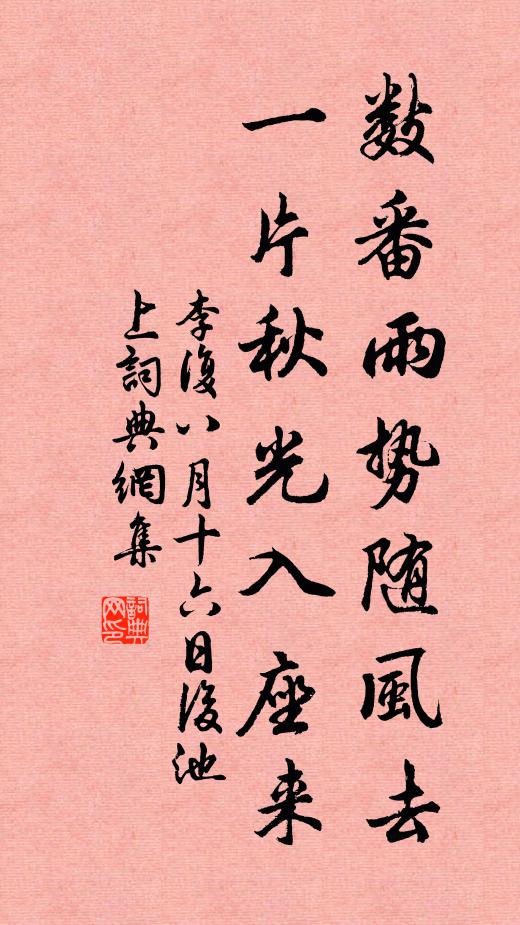 数番雨势随風去
一片秋光入座来
李復八月十六日後池
上詞典網集
詞典网印